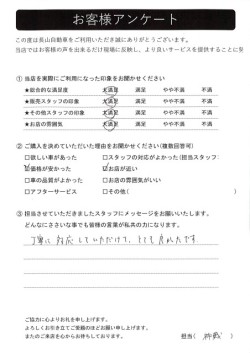 お客様アンケート
この度は長山自動車をご利用いただき誠にありがとうございます。
当店ではお客様の声を出来るだけ現場に反映し、より良いサービスを提供することに努
① 当店を実際にご利用になった印象をお聞かせください
★総合的な満足度 大満足 満足 やや不満 不満
★販売スタッフの印象 大満足 満足 やや不満 不満
★その他スタッフの印象 大満足 満足 やや不満 不満
★お店の雰囲気 大満足 満足 やや不満 不満
② ご購入を決めていただいた理由をお聞かせください(複数回答可)
□欲しい車があった □スタッフの対応がよかった(担当スタッフ:
☑価格が安かった ☑お店が近い
□車の品質がよかった □お店の雰囲気がいい
□アフターサービス □その他(
③ 担当させていただきましたスタッフにメッセージをお願いいたします。
どんなにささいな事でも皆様の言葉が私共の力になります。
丁寧に対応していただけて、とても良かったです
ご協力に心よりお礼を申し上げます。
よろしくお引き立てご愛顧のほどお願い申し上げます。
またのご来店を心からお待ちしております。
担当(